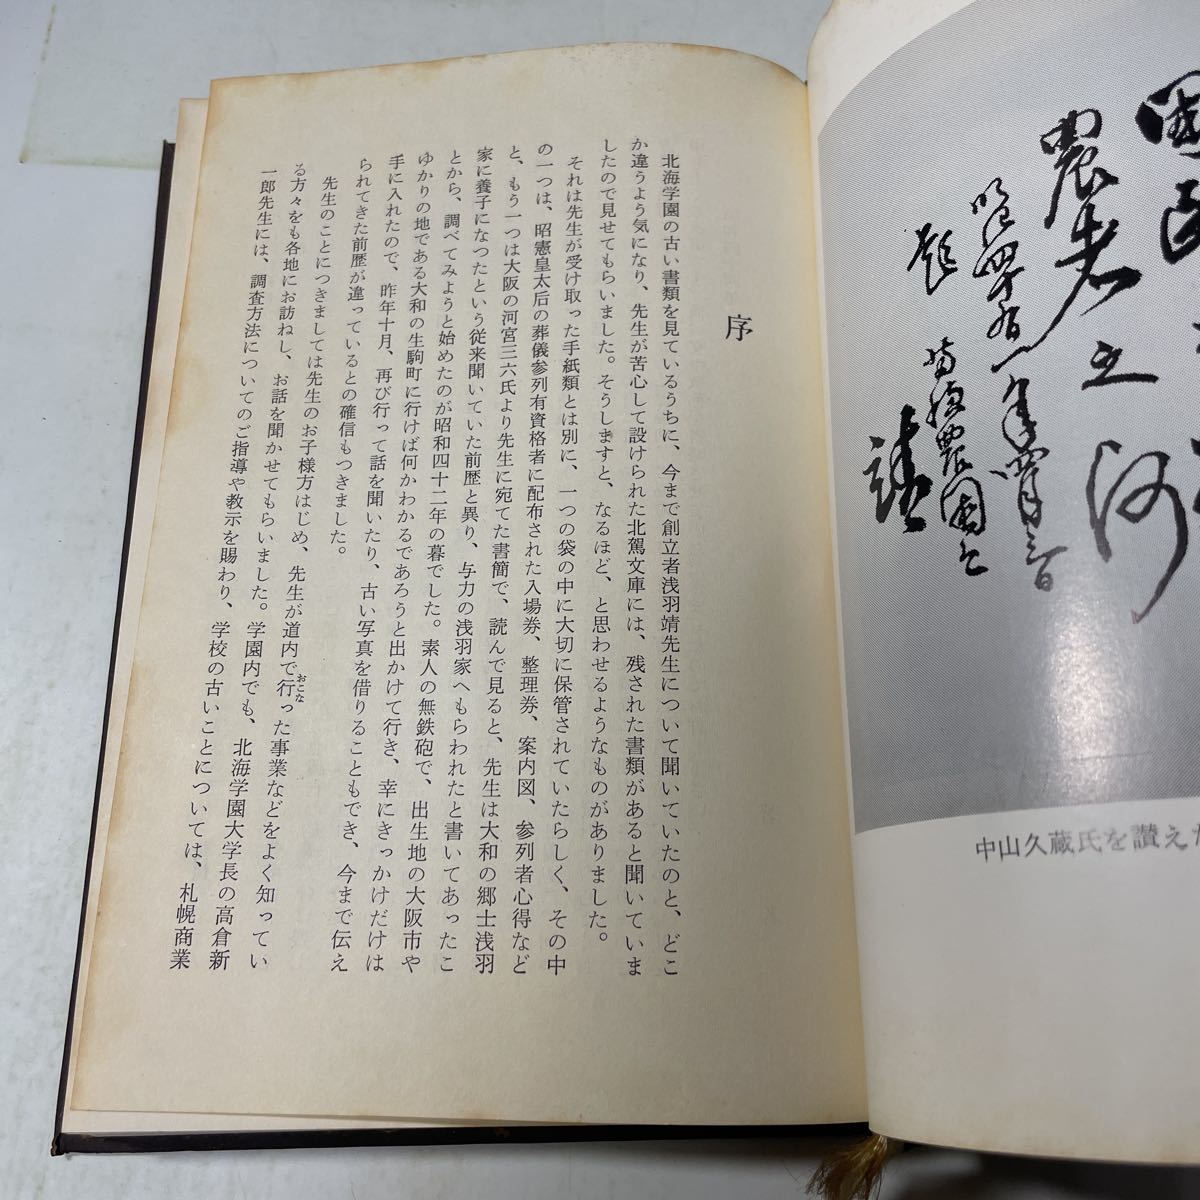 序
北海学園の古い書類を見ているうちに、今まで創立者浅羽靖先生について聞いていたのと、どこ
か違うよう気になり、先生が苦心して設けられた北駕文庫には、残された書類があると聞いていま
したので見せてもらいました。そうしますと、なるほど、と思わせるようなものがありました。
それは先生が受け取った手紙類とは別に、一つの袋の中に大切に保管されていたらしく、その中
の一つは、昭憲皇太后の葬儀参列有資格者に配布された入場券、整理券、案内図、参列者心得など
と、もう一つは大阪の河宮三六氏より先生に宛てた書簡で、読んで見ると、先生は大和の郷士浅羽
家に養子になつたという従来聞いていた前歴と異り、与力の浅羽家へもらわれたと書いてあったこ
とから、調べてみようと始めたのが昭和四十二年の暮でした。素人の無鉄砲で、出生地の大阪市や
ゆかりの地である大和の生駒町に行けば何かわかるであろうと出かけて行き、幸にきっかけだけは
手に入れたので、昨年十月、再び行って話を聞いたり、古い写真を借りることもでき、今まで伝え
られてきた前歴が違っているとの確信もつきました。
先生のことにつきましては先生のお子様方はじめ、先生が道内で行った事業などをよく知ってい
おこな
る方々をも各地にお訪ねし、お話を聞かせてもらいました。学園内でも、北海学園大学長の高倉新
一郎先生には、調査方法についてのご指導や教示を賜わり、学校の古いことについては、札幌商業
農老之
題
靖
中山久蔵氏を讃えた